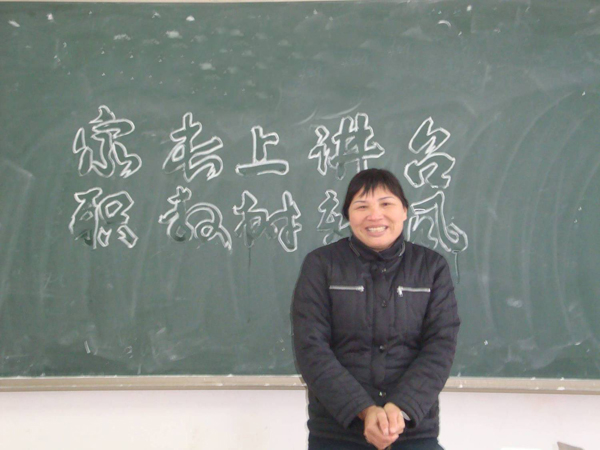 家长上讲台
职教树新风